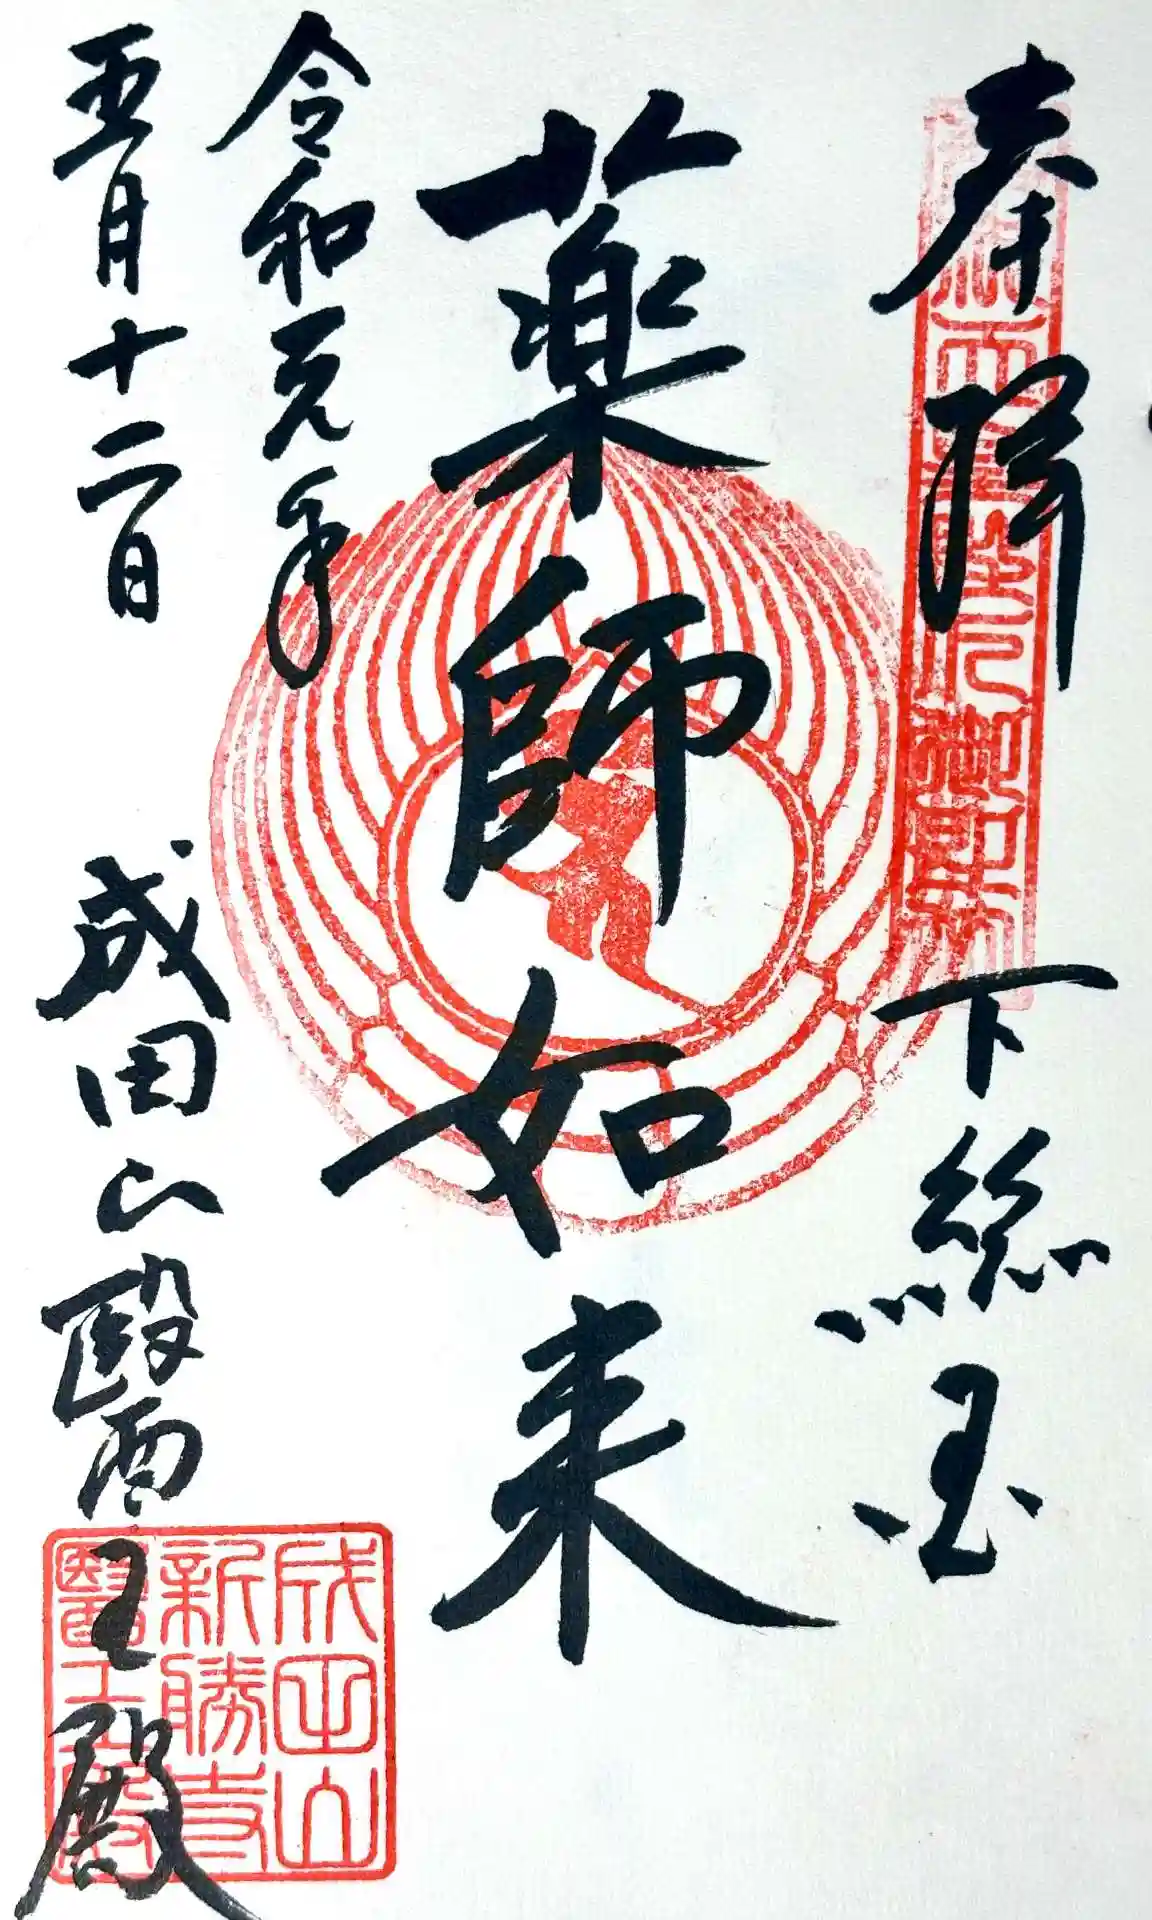 奉拝 下総国
薬師如来
令和元年
五月十二日 成田山醫王殿
成田山
新勝寺
醫王殿